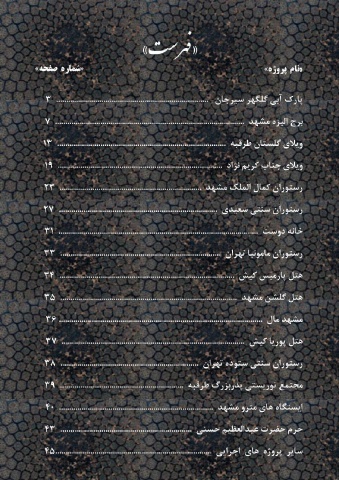 «فهرست»
«نام پروژه» «شماره صفحه»
پارک آبی گلگهر سیرجان ........ ۳
برج الیزه مشهد ........ ۷
ویلای گلستان طرقبه ........ ۱۳
ویلای جناب کریم نژاد ........ ۱۹
رستوران کمال الملک مشهد ........ ۲۳
رستوران سنتی سعیدی ........ ۲۷
خانه دوست ........ ۳۱
رستوران مامونیا تهران ........ ۳۳
هتل پارمیس کیش ........ ۳۴
هتل گلشن مشهد ........ ۳۵
مشهد مال ........ ۳۶
هتل پوریا کیش ........ ۳۷
رستوران سنتی ستوده تهران ........ ۳۸
مجتمع توریستی پدربزرگ طرقبه ........ ۳۹
ایستگاه های مترو مشهد ........ ۴۰
حرم حضرت عبدالعظیم حسنی ........ ۴۳
سایر پروژه های اجرایی ........ ۴۵